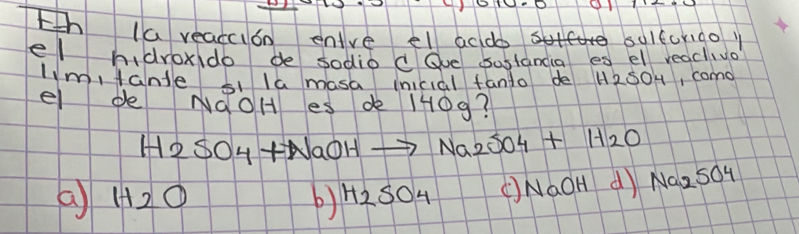 En la reacción entre el acido sulfurico y
el hidroxido de sodio ¿ Que sustancia es el reactivo
limitante si la masa inicial tanto de H2SO4, como
el de NaOH es de 140g?
H2SO4 + NaOH → Na2SO4 + H2O
a) H2O b) H2SO4 c) NaOH d) Na2SO4